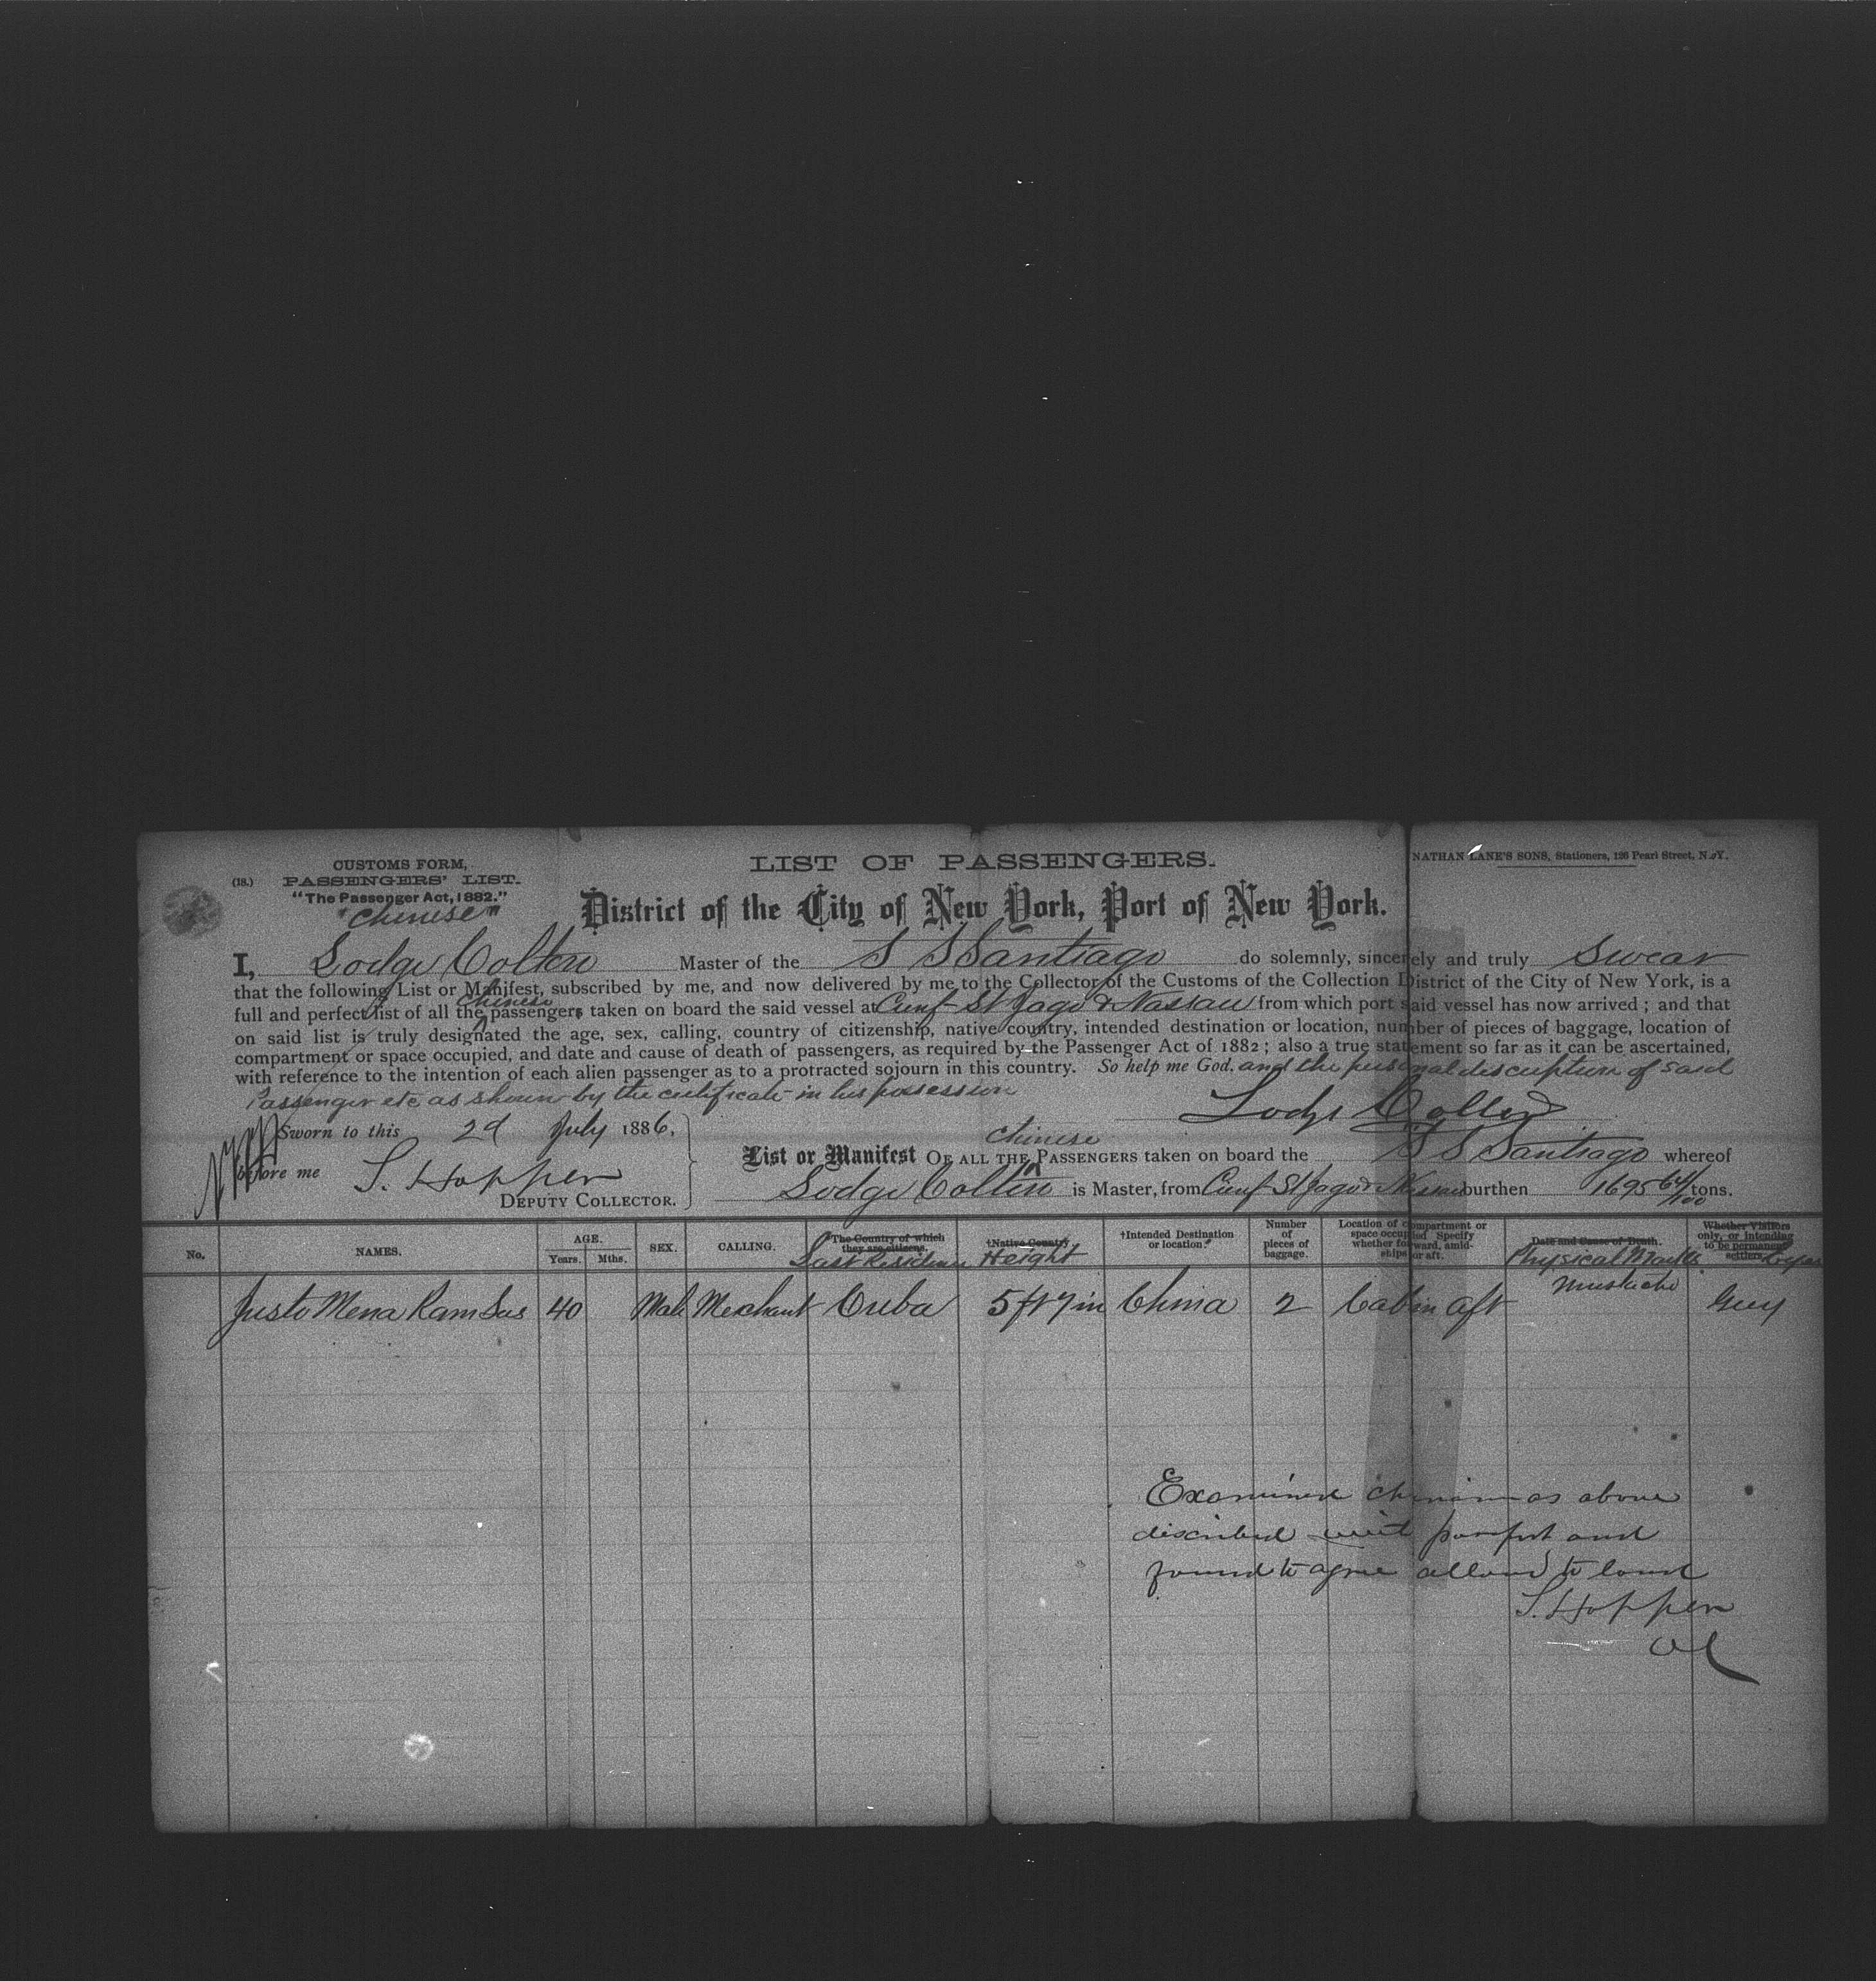 CUSTOMS FORM,
(18.) PASSENGERS' LIST.
"The Passenger Act, 1882."
"Chinese"
LIST OF PASSENGERS.
NATHAN LANE'S SONS, Stationers, 126 Pearl Street, N.Y.
District of the City of New York, Port of New York.
I, Lodge Colton Master of the S S Santiago do solemnly, sincerely and truly Swear
that the following List or Manifest, subscribed by me, and now delivered by me to the Collector of the Customs of the Collection District of the City of New York, is a
full and perfect list of all the Chinese passengers taken on board the said vessel at Cienf St Jago & Nassau from which port said vessel has now arrived; and that
on said list is truly designated the age, sex, calling, country of citizenship, native country, intended destination or location, number of pieces of baggage, location of
compartment or space occupied, and date and cause of death of passengers, as required by the Passenger Act of 1882; also a true statement so far as it can be ascertained,
with reference to the intention of each alien passenger as to a protracted sojourn in this country. So help me God. and the personal description of said
Passenger etc as shown by the certificate in his possession
Lodge Colton
Sworn to this 29 July 1886,
before me S. Hopper
DEPUTY COLLECTOR.
List or Manifest OF ALL THE Chinese PASSENGERS taken on board the S S Santiago whereof
Lodge Colton is Master, from Cienf St Jago & Nassau burthen 1695 64/100 tons.
No. NAMES. AGE. Years. Mths. SEX. CALLING. The Country of which they are citizens. Last Residence †Native Country Height †Intended Destination or location. Number of pieces of baggage. Location of compartment or space occupied Specify whether forward, amidships or aft. Date and Cause of Death. Physical Marks Whether Visitors only, or intending to be permanent settlers. Eyes
Justo Mena Ram Sas 40 Male Merchant Cuba 5 ft 7 in China 2 Cabin Aft Mustache Grey
Examined chinaman as above
discribed with and
found to agree allowed to land
S. Hopper